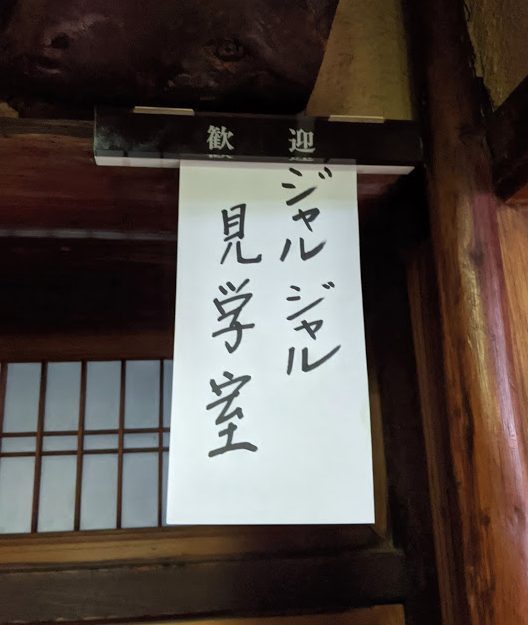 歓迎
ジャルジャル
見学室